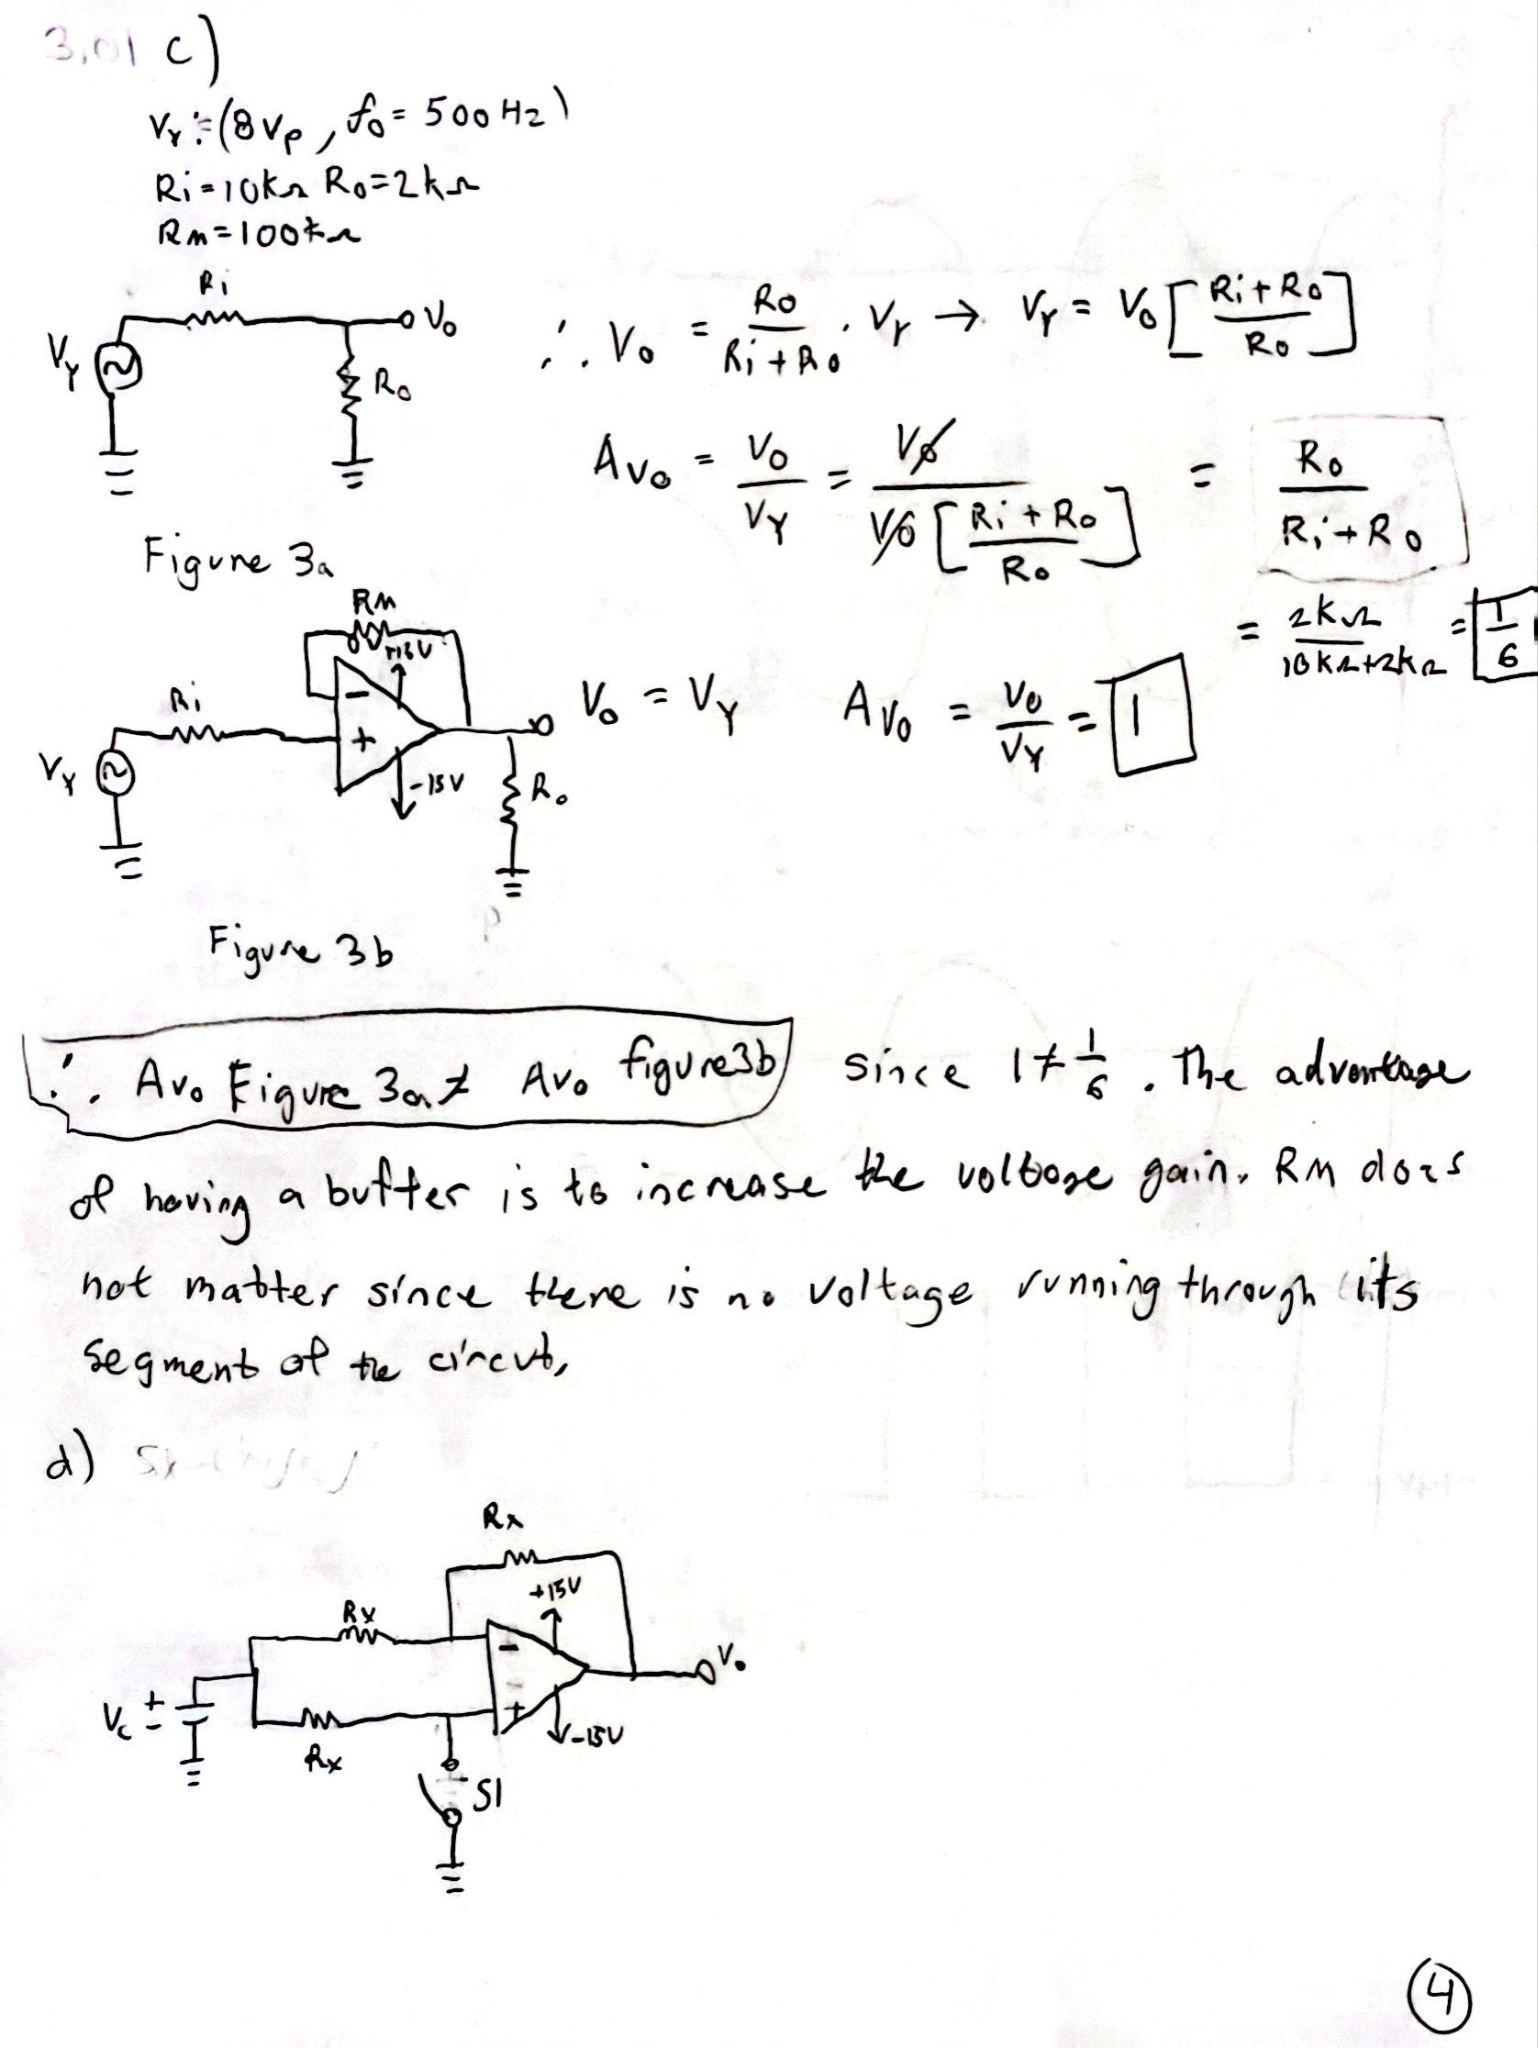 3.01 c)
Vy: (8Vp, fo = 500 Hz)
Ri = 10kΩ Ro = 2kΩ
Rm = 100kΩ
Ri
Vo
Vy
Ro
∴ Vo = Ro / Ri + Ro · Vy → Vy = Vo [Ri + Ro / Ro]
Avo = Vo / Vy = Vo / Vo [Ri + Ro / Ro] = Ro / Ri + Ro
= 2kΩ / 10kΩ+2kΩ = 1/6
Figure 3a
Rm
0V
+15V
Ri
-
+
Vy
-15V
Ro
Vo = Vy Avo = Vo / Vy = 1
Figure 3b
∴ Avo Figure 3a ≠ Avo figure3b since 1 ≠ 1/6. The advantage
of having a buffer is to increase the voltage gain. RM does
not matter since there is no voltage running through its
segment of the circut.
d)
Rx
+15V
Rx
-
Vo
Vc + -
+
-15V
Rx
S1
4